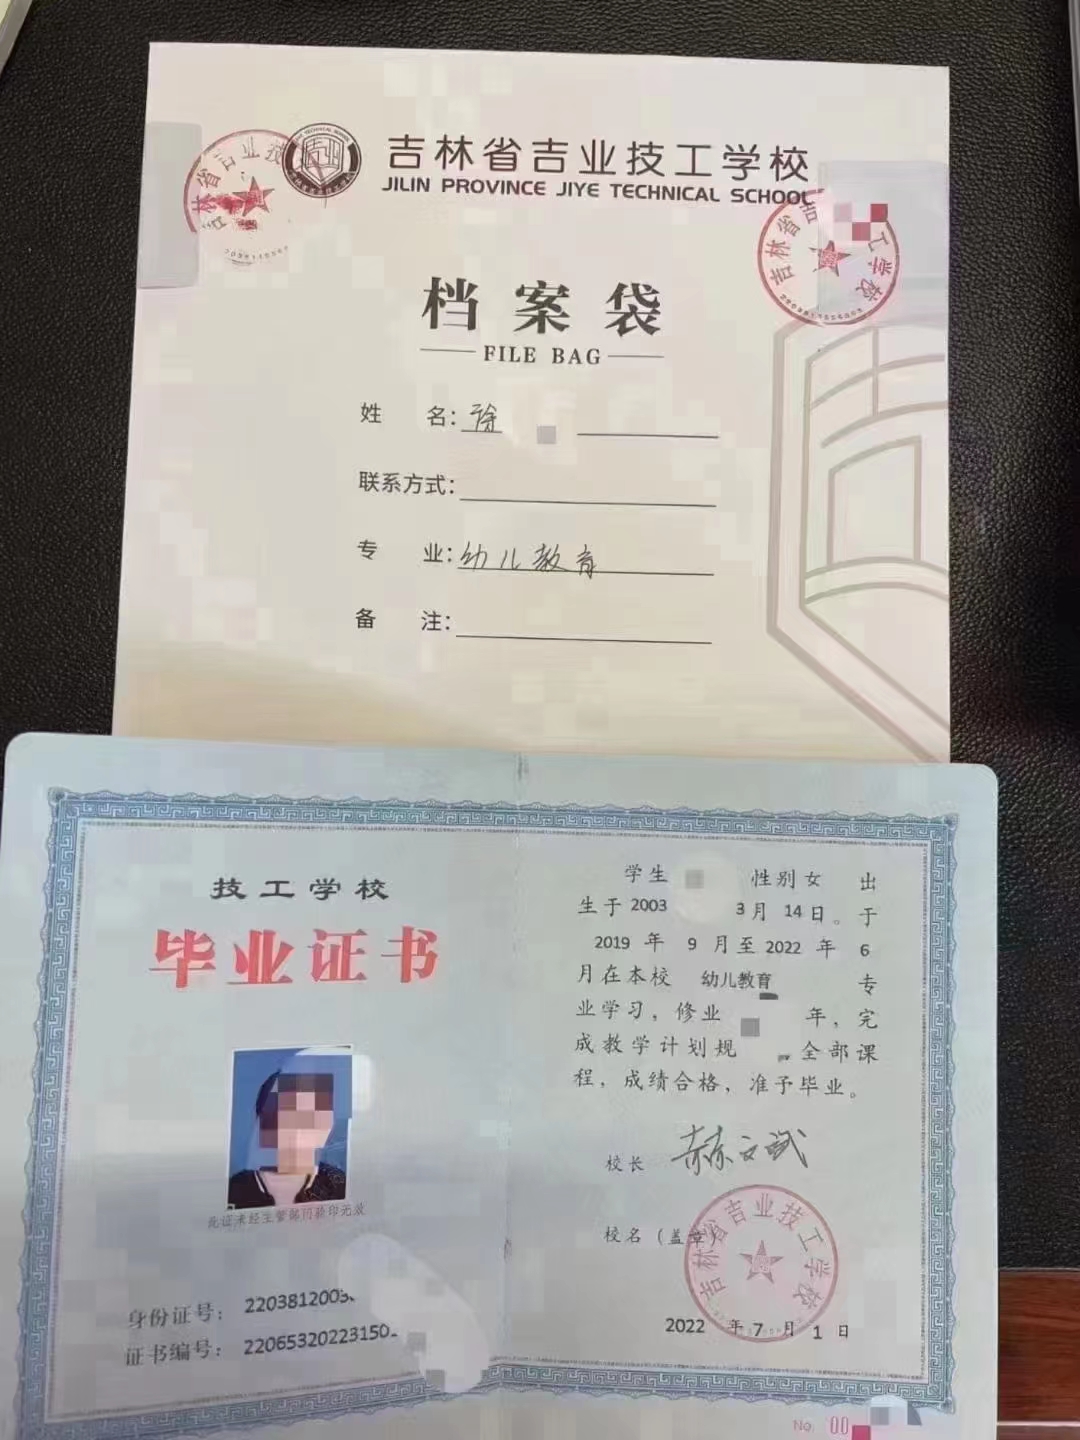 吉林省吉业技工学校
JILIN PROVINCE JIYE TECHNICAL SCHOOL
吉林省吉业技
吉林省吉 工学校
档案袋
FILE BAG
姓 名: 徐
联系方式:
专 业: 幼儿教育
备 注:
技工学校
毕业证书
此证未经主管部门验印无效
身份证号: 2203812003
证书编号: 22065320223150
学生 性别 女 出
生于 2003 3 月 14 日。于
2019 年 9 月至 2022 年 6
月在本校 幼儿教育 专
业学习，修业 年，完
成教学计划规 全部课
程，成绩合格，准予毕业。
校长 赫文斌
校名（盖章）
吉林省吉业技工学校
2022 年 7 月 1 日
No. 00